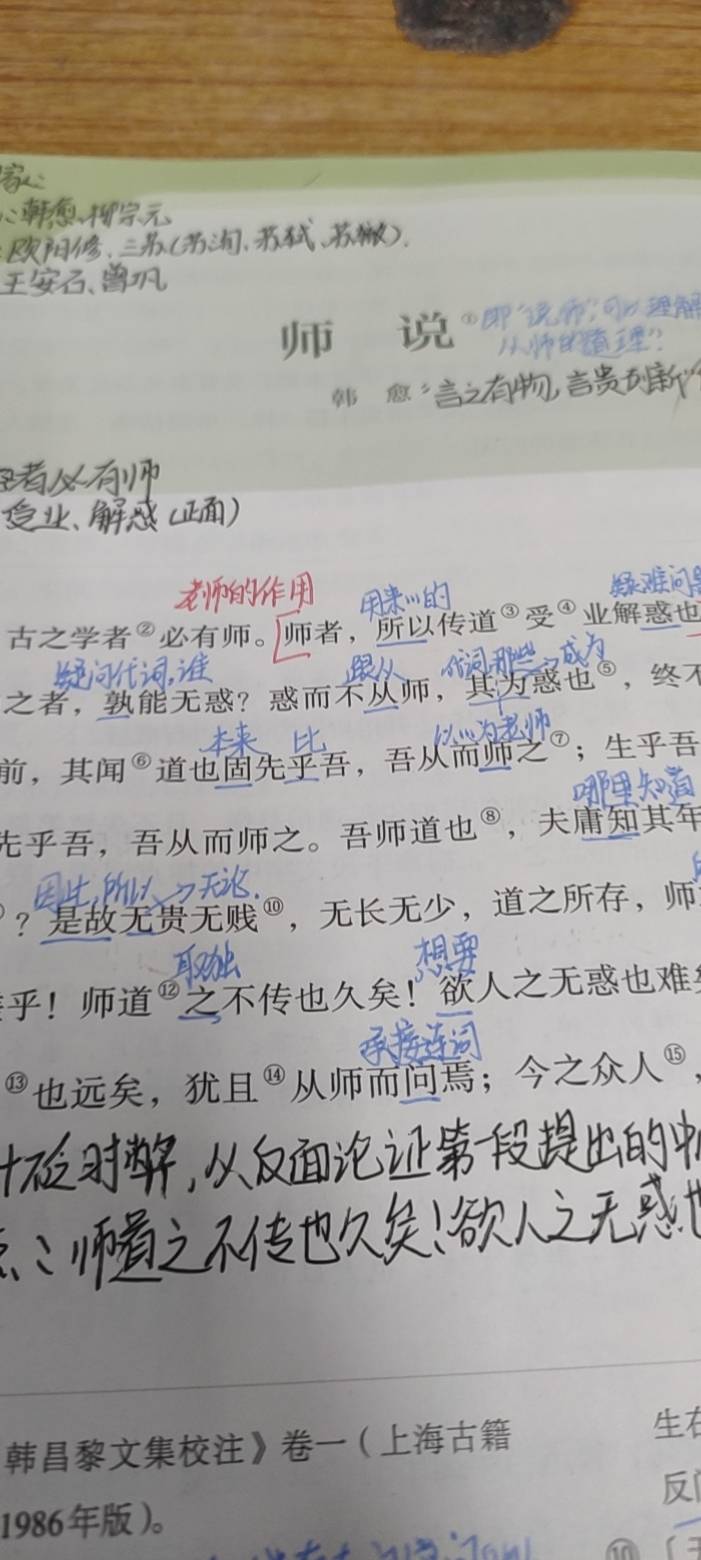 家:
:韩愈、柳宗元
:欧阳修、三苏(苏洵、苏轼、苏辙).
王安石、曾巩
师 说①即"说师",可以理解
从师的道理?
韩 愈:言之有物,言贵创新
者必有师
受业、解惑(正面)
老师的作用 用来…的 疑难问题
古之学者②必有师。师者,所以传道③受④业解惑也
疑问代词,谁 跟从 代词,那些 成为
之者,孰能无惑?惑而不从师,其为惑也⑤,终不
本来 比 以…为老师
前,其闻⑥道也固先乎吾,吾从而师之⑦;生乎吾
哪里知道
先乎吾,吾从而师之。吾师道也⑧,夫庸知其年
因此,所以 无论.
?是故无贵无贱⑩,无长无少,道之所存,师
取独 想要
乎!师道⑫之不传也久矣!欲人之无惑也难矣
承接连词
⑬也远矣,犹且⑭从师而问焉;今之众人⑮,
针砭时弊,从反面论证第一段提出的中
点:师道之不传也久矣!欲人之无惑也
韩昌黎文集校注》卷一(上海古籍
1986年版)。
生在
反
⑩〔